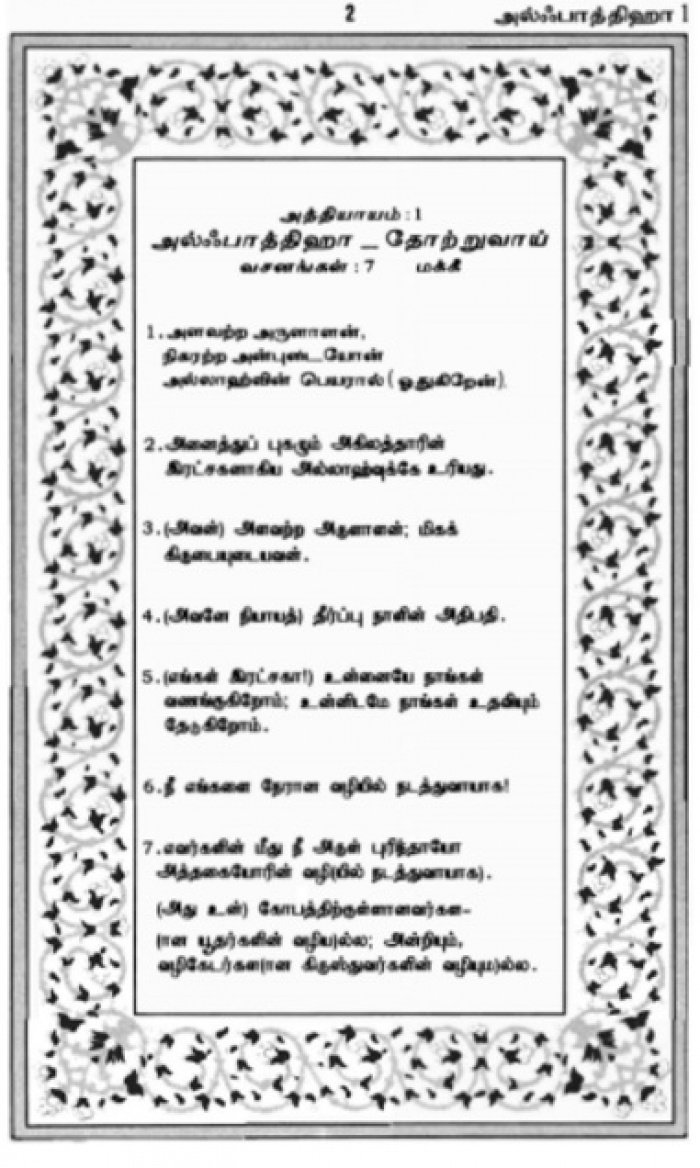 2 அல்ஃபாத்திஹா 1
அத்தியாயம் : 1
அல்ஃபாத்திஹா _ தோற்றுவாய்
வசனங்கள் : 7 மக்கீ
1. அளவற்ற அருளாளன்,
நிகரற்ற அன்புடையோன்
அல்லாஹ்வின் பெயரால் ( ஓதுகிறேன்).
2. அனைத்துப் புகழும் அகிலத்தாரின்
இரட்சகனாகிய அல்லாஹ்வுக்கே உரியது.
3. (அவன்) அளவற்ற அருளாளன்; மிகக்
கிருபையுடையவன்.
4. (அவனே நியாயத்) தீர்ப்பு நாளின் அதிபதி.
5. (எங்கள் இரட்சகா!) உன்னையே நாங்கள்
வணங்குகிறோம்; உன்னிடமே நாங்கள் உதவியும்
தேடுகிறோம்.
6. நீ எங்களை நேரான வழியில் நடத்துவாயாக!
7. எவர்களின் மீது நீ அருள் புரிந்தாயோ
அத்தகையோரின் வழி(யில் நடத்துவாயாக).
(அது உன்) கோபத்திற்குள்ளானவர்கள-
(ான யூதர்களின் வழிய)ல்ல; அன்றியும்,
வழிகேடர்கள(ான கிருஸ்துவர்களின் வழியும)ல்ல.